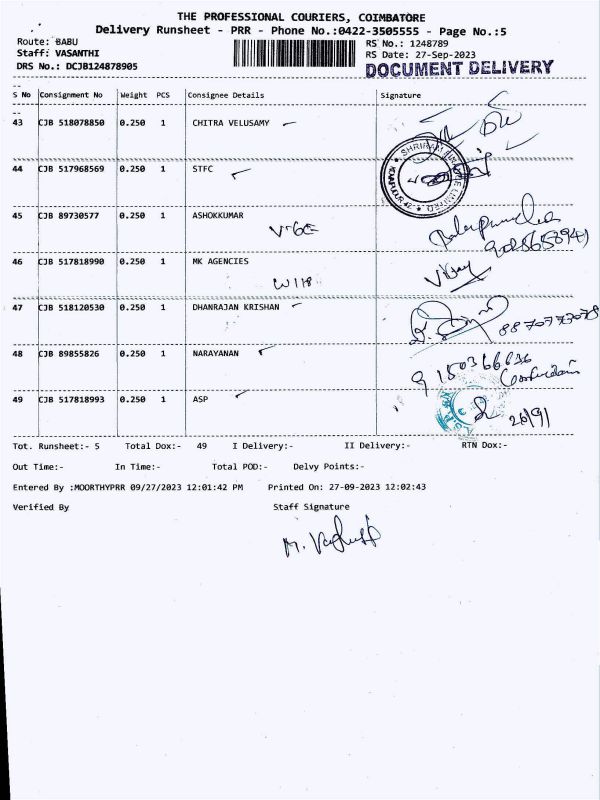 THE PROFESSIONAL COURIERS, COIMBATORE
Delivery Runsheet - PRR - Phone No.:0422-3505555 - Page No.:5
Route: BABU
RS No.: 1248789
Staff: VASANTHI
RS Date: 27-Sep-2023
DRS No.: DCJB124878905
DOCUMENT DELIVERY
S No Consignment No Weight PCS Consignee Details Signature
43 CJB 518078850 0.250 1 CHITRA VELUSAMY
44 CJB 517968569 0.250 1 STFC
SHRIRAM FINANCE LIMITED
45 CJB 89730577 0.250 1 ASHOKKUMAR
46 CJB 517818990 0.250 1 MK AGENCIES
Vijay
47 CJB 518120530 0.250 1 DHANRAJAN KRISHAN
48 CJB 89855826 0.250 1 NARAYANAN
9150366636
49 CJB 517818993 0.250 1 ASP
26/9/
Tot. Runsheet:- 5 Total Dox:- 49 I Delivery:- II Delivery:- RTN Dox:-
Out Time:- In Time:- Total POD:- Delvy Points:-
Entered By :MOORTHYPRR 09/27/2023 12:01:42 PM Printed On: 27-09-2023 12:02:43
Verified By Staff Signature